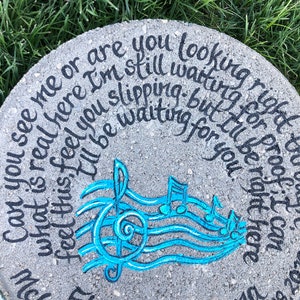 Can you see me or are you looking right
what is real here I'm still waiting for proof. I can
feel this, feel you slipping. but I'll be right here
I'll be waiting for you